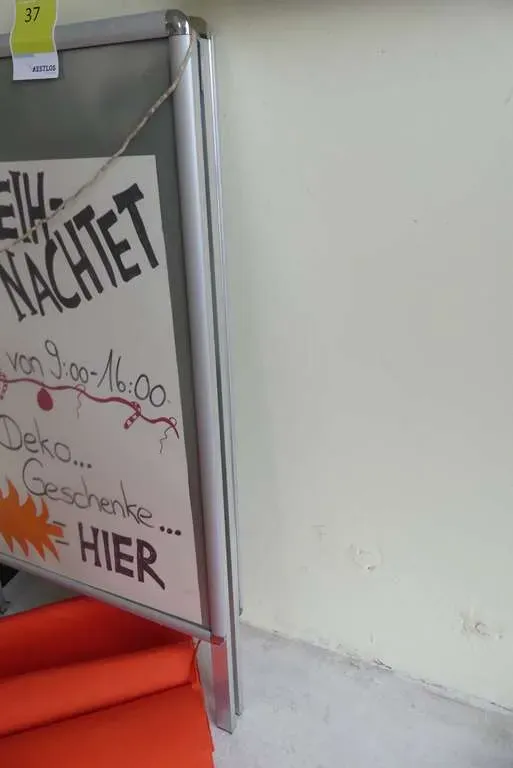 37
AESTLOS
EIH-
NACHTET
von 9:00-16:00
Deko...
Geschenke...
- HIER